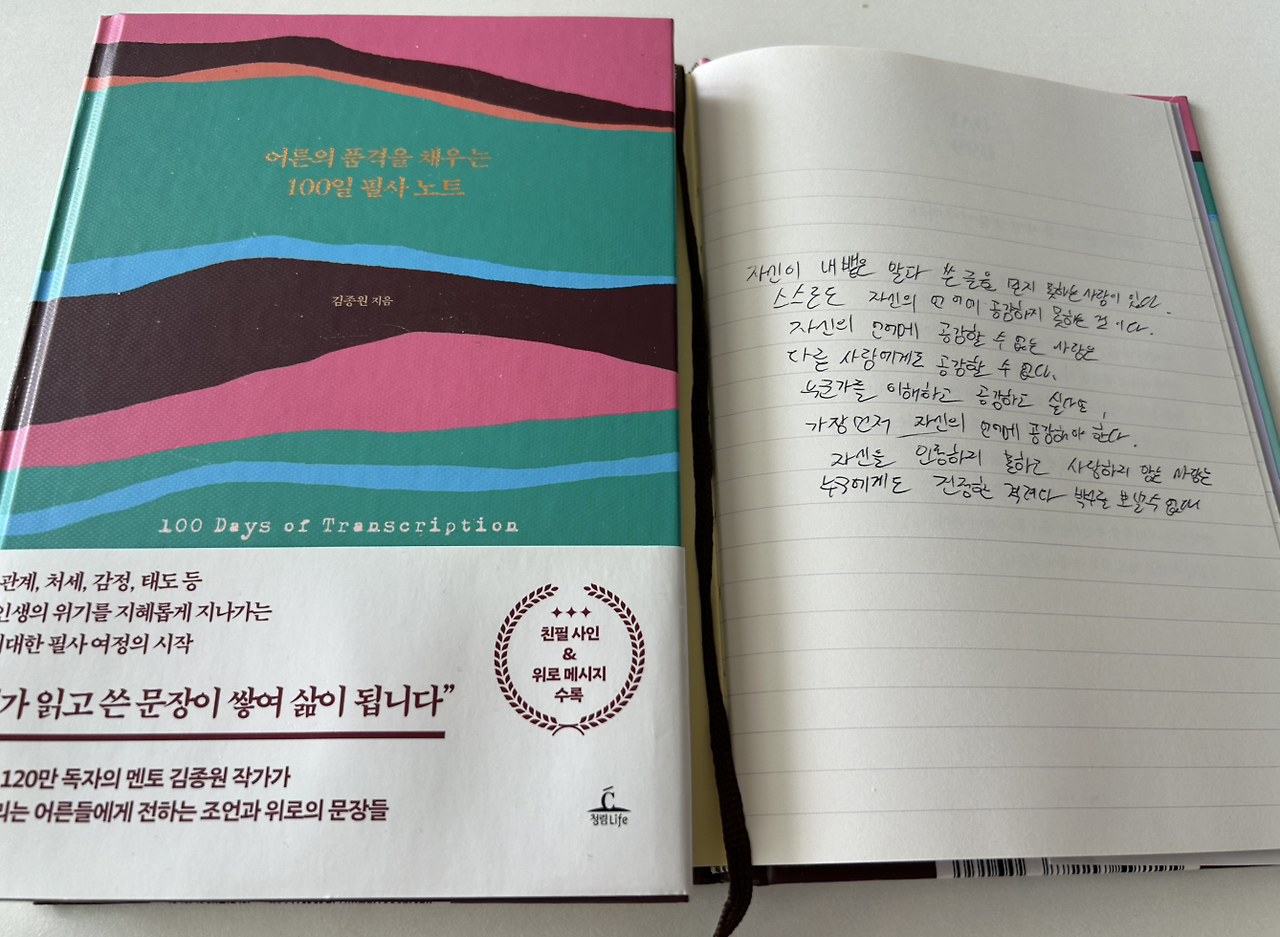 어른의 품격을 채우는
100일 필사 노트
김종원 지음
100 Days of Transcription
관계, 처세, 감정, 태도 등
인생의 위기를 지혜롭게 지나가는
대한 필사 여정의 시작
가 읽고 쓴 문장이 쌓여 삶이 됩니다”
120만 독자의 멘토 김종원 작가가
는 어른들에게 전하는 조언과 위로의 문장들
친필 사인
&
위로 메시지
수록
청림Life
자신이 내뱉은 말과 쓴 글을 믿지 못하는 사람이 있다.
스스로도 자신의 언어에 공감하지 못하는 것이다.
자신의 언어에 공감할 수 없는 사람은
다른 사람에게도 공감할 수 없다.
누군가를 이해하고 공감하고 싶다면,
가장 먼저 자신의 언어에 공감해야 한다.
자신을 인정하지 못하고 사랑하지 않는 사람은
누구에게도 진정한 격려와 보낼 수 없다